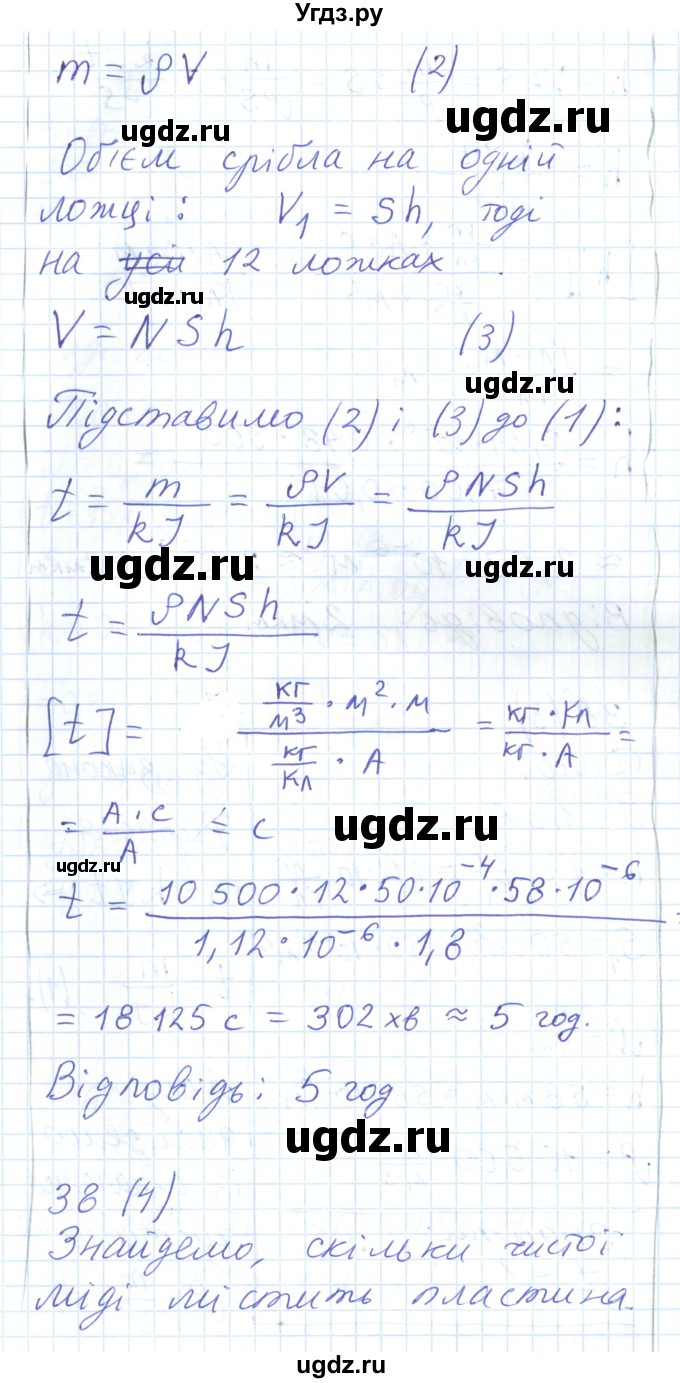 Угдз.ру
m = ρV (2)
ugdz.ru ugdz.ru
Об'єм срібла на одній
ложці: V₁ = Sh, тоді
на усіх 12 ложках
ugdz.ru
V = NSh (3)
ugdz.ru
Підставимо (2) і (3) до (1):
t = m/kI = ρV/kI = ρNSh/kI
ugdz.ru ugdz.ru
t = ρNSh/kI
[t] = (кг/м³ · м² · м)/(кг/Кл · А) = (кг · Кл)/(кг · А) =
= (А · с)/А = с
ugdz.ru
ugdz.ru
t = (10 500 · 12 · 50 · 10⁻⁴ · 58 · 10⁻⁶)/(1,12 · 10⁻⁶ · 1,8) =
= 18 125 с = 302 хв ≈ 5 год.
Відповідь: 5 год
ugdz.ru
38 (4)
Знайдемо, скільки чистої
міді містить пластина.
ugdz.ru